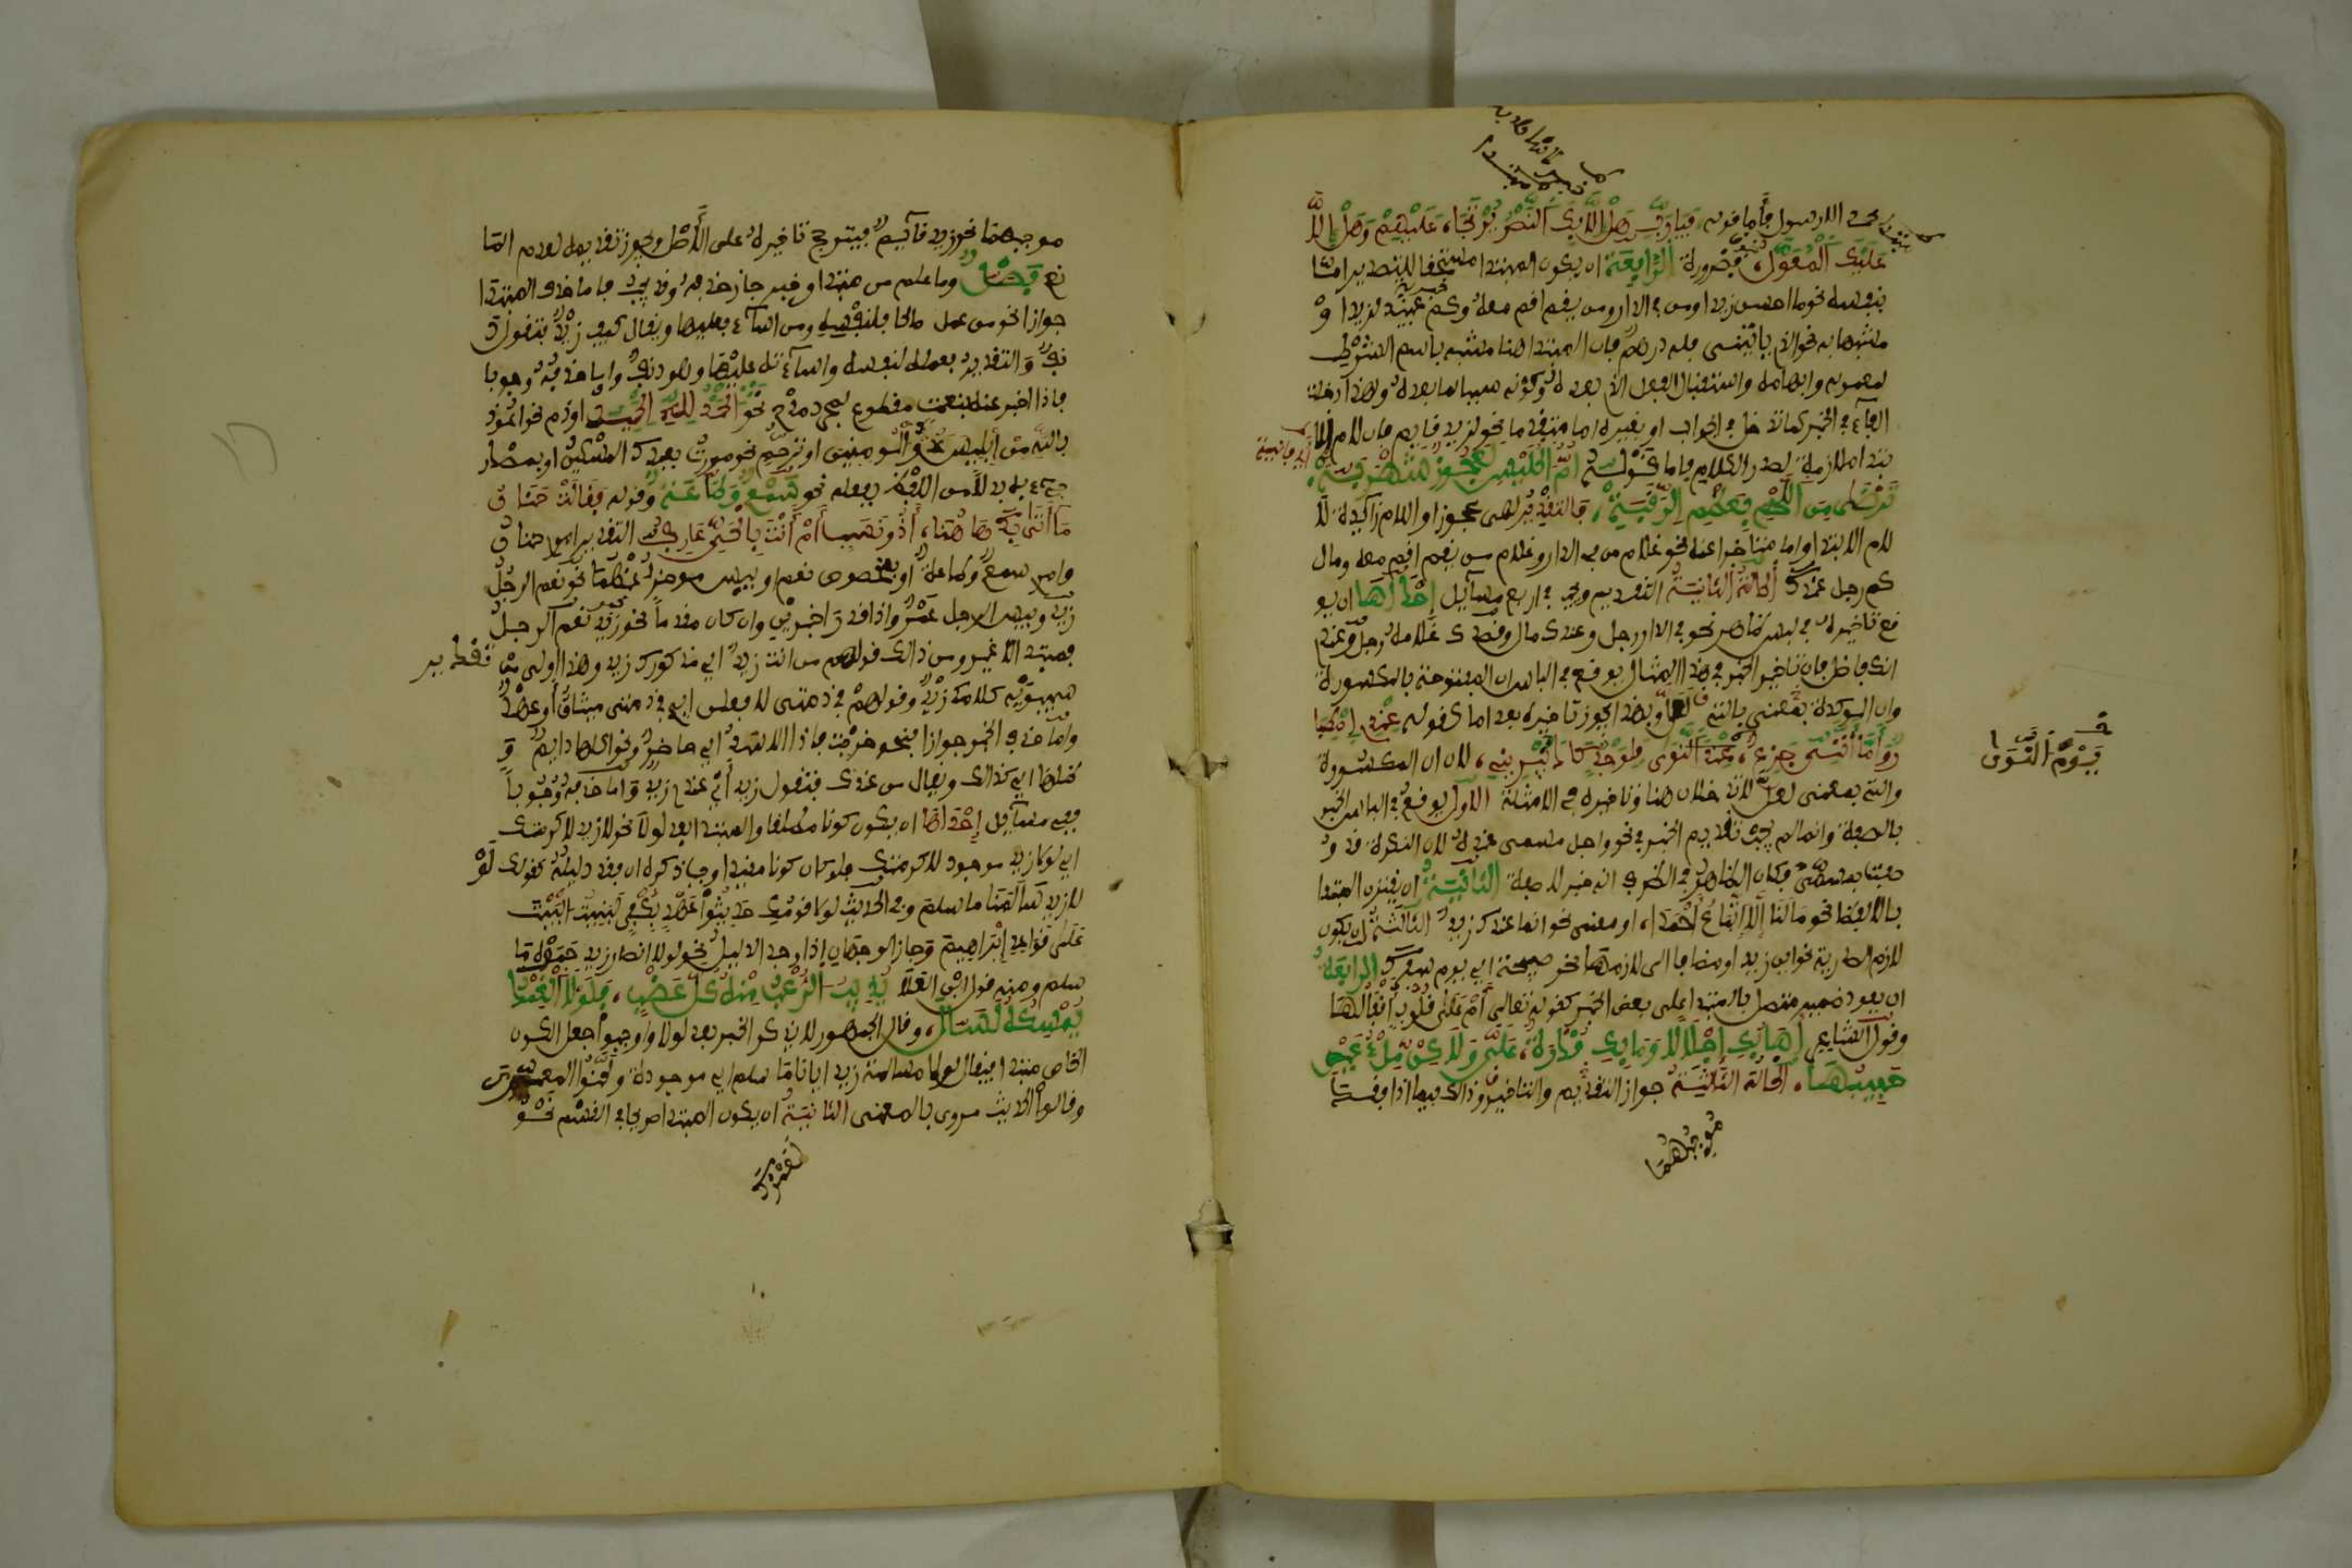 محمد الا رسول فأما قوله فيا رب هل إلا بك النصر يرتجى، عليهم وهل إلا
عليك المعول، فضرورة الرابعة ان يكون المبتدا مستحقا للتصدير اما
بنفسه نحو ما احسن زيدا ومن في الدار ومن يقم اقم معه وكم عبيد لزيد او
مشبها به نحو الذي ياتيني فله درهم فان المبتدا هنا مشبه باسم الشرط
لعمومه وابهامه واستقبال الفعل الذي بعده وكونه سببا لما بعده ولهذا دخلت
الفاء في الخبر كما تدخل في الجواب او بغيره اما متقدما نحو لزيد قايم فان لام الا
بتدا ملازمة لصدر الكلام فاما قوله ام الحليس لعجوز شهربه،
ترضى من اللحم بعظم الرقبه، فالتقدير لهي عجوز او اللام زائدة لا
لام الابتدا او اما متاخرا عنه نحو غلام من في الدار وغلام من يقم اقم معه ومال
كم رجل عندك الحالة الثانية التقديم ويجب في اربع مسايل إحداها ان يو
قع تاخيره في لبس ظاهر نحو في الدار رجل وعندي مال وقصدك غلامه رجل وعندي
انك فاضل فان تاخير الخبر في هذا المثال يوقع في الباس ان المفتوحة بالمكسورة
وان الموكدة بالتي بمعنى لعل ولهذا يجوز تاخيره بعد اما كقوله عندي اصطبار
واما أنني جزع، يوم النوى فلوجد كاد يبريني، لان ان المكسورة
والتي بمعنى لعل لا تدخلان هنا وتاخيره في الامثلة الاول يوقع في الباس الخبر
بالصفة وانما لم يجب تقديم الخبر في نحو واجل مسمى عنده لان النكرة قد و
صفت بمسمى فكان الظاهر في الظرف انه خبر لا صفة الثانية ان يقترن المبتدا
بالا لفظا نحو ما لنا إلا اتباع أحمدا، او معنى نحو انما عندك زيد الثالثة ان يكون
لازم الصدرية نحو اين زيد او مضافا الى ملازمها نحو صبيحة اي يوم سفرك الرابعة
ان يعود ضمير متصل بالمبتدا على بعض الخبر كقوله تعالى أم على قلوب أقفالها
وقول الشاعر أهابك إجلالا وما بك قدرة، علي ولكن ملء عين
حبيبها، الحالة الثالثة جواز التقديم والتاخير وذلك فيما اذا فقد
موجبهما
يوم النوى
موجبهما نحو زيد قايم فيترجح تاخيره على الأصل ويجوز تقديمه لعدم الما
نع فصل وما علم من مبتدا او خبر جاز حذفه وقد يجب فاما حذف المبتدا
جوازا نحو من عمل صالحا فلنفسه ومن اساء فعليها ويقال كيف زيد فتقول د
نف والتقدير فعمله لنفسه واساءته عليها وهو دنف واما حذفه وجوبا
فاذا اخبر عنه بنعت مقطوع لمجرد مدح نحو الحمد لله الحميد او ذم نحو اعوذ
بالله من إبليس عدو المومنين او ترحم نحو مررت بعبدك المسكين او بمصدر
جيء به بدلا من اللفظ بفعله نحو سمع وطاعة وقوله فقالت حنان
ما أتى بك هاهنا، أذو نسب أم أنت بالحي عارف، التقدير امري حنان
وامري سمع وطاعة او بمخصوص نعم او بيس موخر عنهما نحو نعم الرجل
زيد وبيس الرجل عمرو اذا قدرا خبرين وان كان مقدما نحو زيد نعم الرجل
فمبتدا لا غير ومن ذلك قولهم من انت زيد اي مذكورك زيد وهذا اولى من تقدير
سيبويه كلامك زيد وقولهم في ذمتي لافعلن اي في ذمتي ميثاق أو عهد
واما حذف الخبر جوازا فنحو خرجت فاذا الاسد اي حاضر ونحو اكلها دايم و
ظلها اي كذلك ويقال من عندك فتقول زيد أي عندي زيد واما حذفه وجوبا
ففي مسايل إحداها ان يكون كونا مطلقا والمبتدا بعد لولا نحو لولا زيد لاكرمتك
اي لولا زيد موجود لاكرمتك فلو كان كونا مقيدا وجب ذكره ان فقد دليله كقولك لو
لا زيد سالمنا ما سلم وفي الحديث لولا قومك حديثوا عهد بكفر لبنيت البيت
على قواعد إبراهيم وجاز الوجهان إذا وجد الدليل نحو لولا انصار زيد حموه ما
سلم ومنه قول ابي العلا يذيب الرعب منه كل عضب، فلولا الغمد
يمسكه لسال، وقال الجمهور لا يذكر الخبر بعد لولا واوجبوا جعل الكون
الخاص مبتدا فيقال لولا مسالمة زيد ايانا ما سلم اي موجودة ولحنوا المعري
وقالوا الحديث مروي بالمعنى الثانية ان يكون المبتدا صريحا في القسم نحو
لعمرك